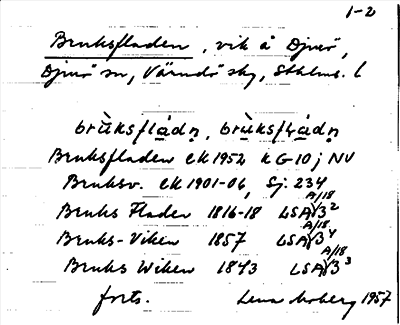 1-2
Bruksfladen, vik å Djurö,
Djurö sn, Värmdö skg, Sthlms. l
brùksflàdn, brùksflàdn
Bruksfladen EK 1952 KG-10j NV
Bruksv. EK 1901-06, Sj. 234
Bruks Flader 1816-18 LSA A/18 3²
Bruks-Viken 1857 LSA A/18 3⁴
Bruks Wiken 1843 LSA A/18 3³
forts. Lena Moberg 1957